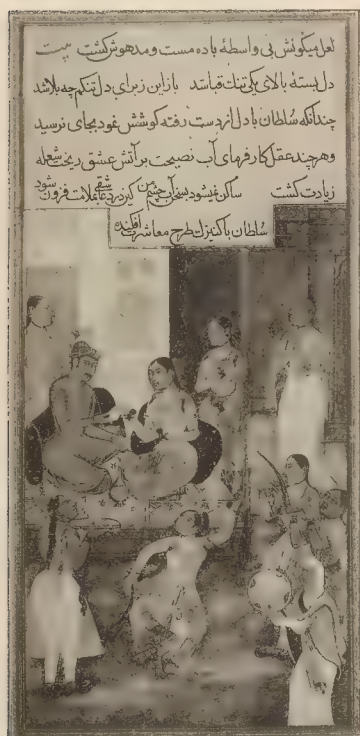 لعل میگونش بی واسطهٔ باده مست و مدهوش گشت بیت
دل بستهٔ بالای یکی تنک قبا شد بازاین زبرای دل تنکم چه بلا شد
چندانکه سُلطان با دل از دست رفته کوشش نمود بجای نرسید
وهرچند عقل کارفرمای آب نصیحت بر آتش عشق ریخت شعله
زیادت کشت ساکن نمیشود بسخن آب چشم من کین درد عاشقی بملامت فزون شود
سُلطان با کنیزک طرح معاشرت افکنده